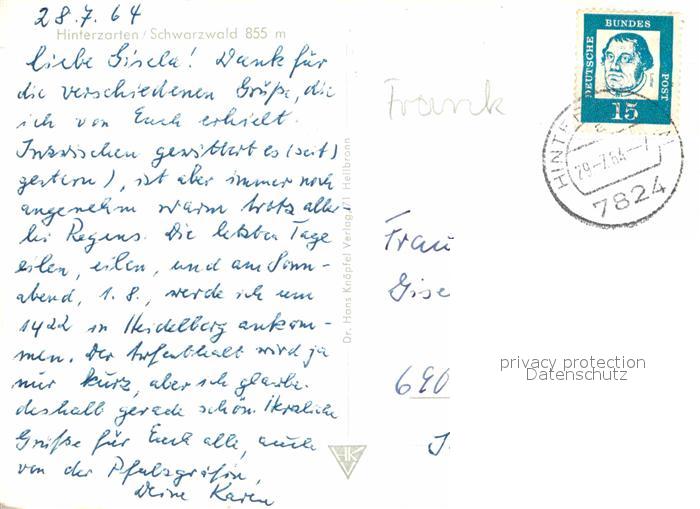 28.7.64
Hinterzarten / Schwarzwald 855 m
Liebe Gisela! Dank für
die verschiedenen Grüße, die
ich von Euch erhielt.
Inzwischen gewittert es (seit
gestern), ist aber immer noch
angenehm warm trotz aller-
lei Regens. Die letzten Tage
eilen, eilen, und am Sonn-
abend, 1.8., werde ich um
1422 in Heidelberg ankom-
men. Der Aufenthalt wird ja
nur kurz, aber ich glaube
deshalb gerade schön. Herzliche
Grüße für Euch alle, auch
von der Pfalzgräfin,
Deine Karen
Dr. Hans Knöpfel Verlag, 71 Heilbronn
HK
V
Franck
DEUTSCHE
BUNDES
POST
15
HINTE
29.-7.64.-7
7824
Frau
Gise
690
privacy protection
Datenschutz